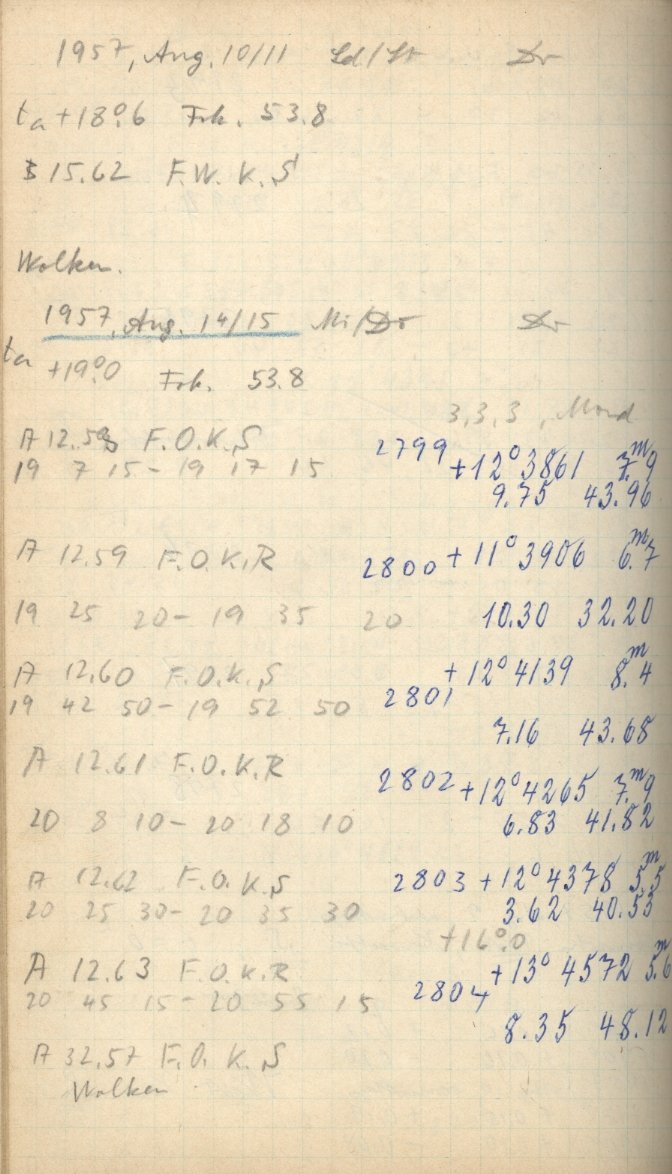 1957, Aug. 10/11 Sd/St Dr
ta +18°.6 Fok. 53.8
B 15.62 F.W.K.S
Wolken.
1957, Aug. 14/15 Mi/Do Dr
ta +19°.0 Fok. 53.8
3,3,3, Mond
A 12.58 F.O.K.S 2799 +12° 3861 7.m9
19 7 15 - 19 17 15 9.75 43.96
A 12.59 F.O.K.R 2800 +11° 3906 6.m7
19 25 20 - 19 35 20 10.30 32.20
A 12.60 F.O.K.S 2801 +12° 4139 8.m4
19 42 50 - 19 52 50 7.16 43.68
A 12.61 F.O.K.R 2802 +12° 4265 7.m9
20 8 10 - 20 18 10 6.83 41.82
A 12.62 F.O.K.S 2803 +12° 4378 5.m5
20 25 30 - 20 35 30 3.62 40.53
+16°.0
A 12.63 F.O.K.R 2804 +13° 4572 5.m6
20 45 15 - 20 55 15 8.35 48.12
A 32.57 F.O.K.S
Wolken